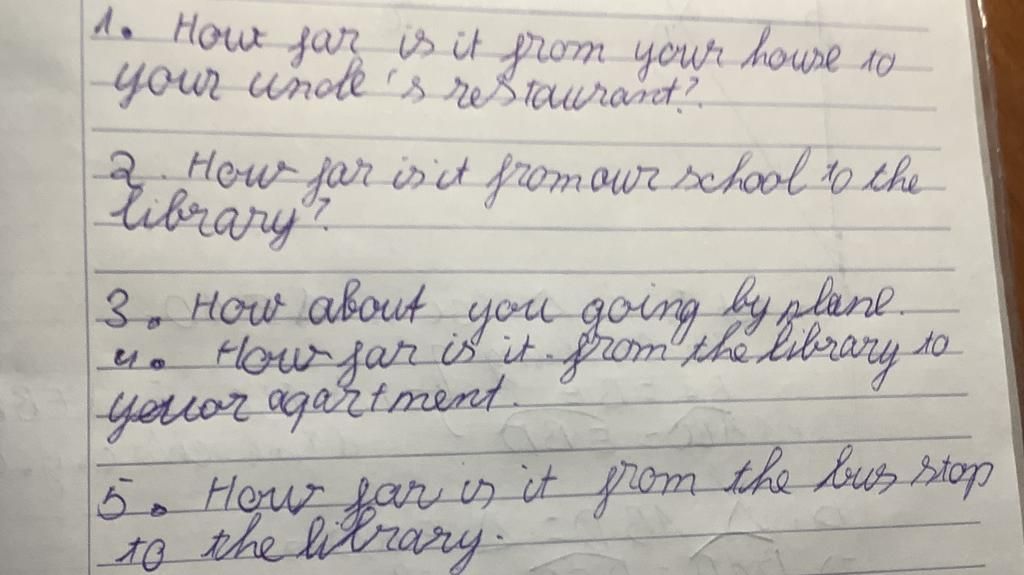 1. How far is it from your house to
your uncle's restaurant?
2. How far is it from our school to the
library?
3. How about you going by plane.
4. How far is it from the library to
apartment.
5. How far is it from the bus stop
to the library.